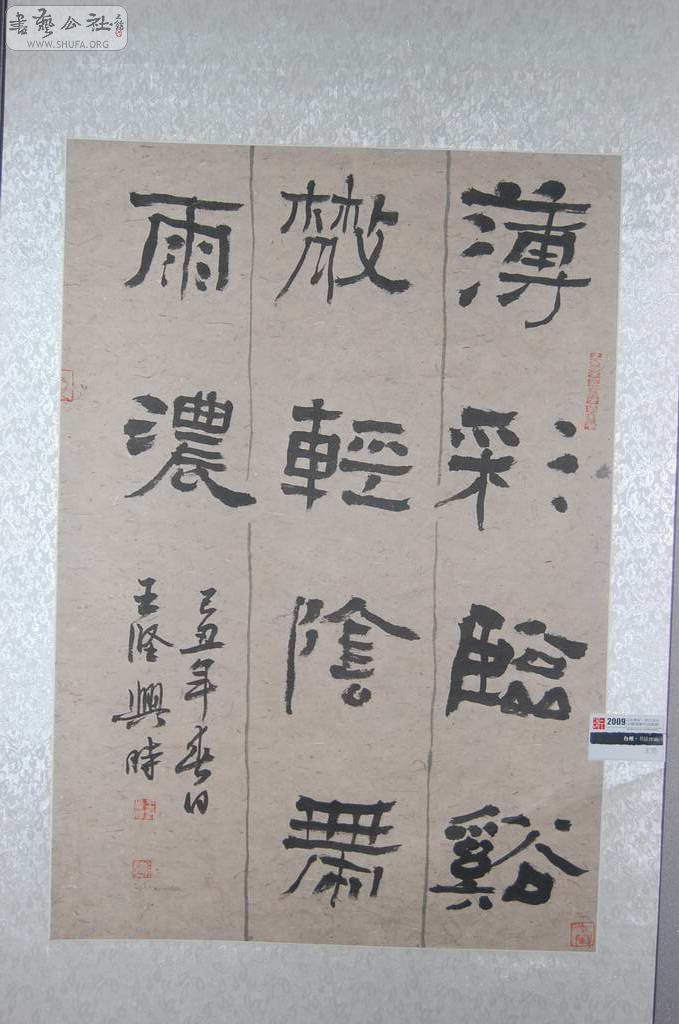 書藝公社
WWW.SHUFA.ORG
薄彩臨谿
散輕陰帶
雨濃
己丑年春日
王興時
2009